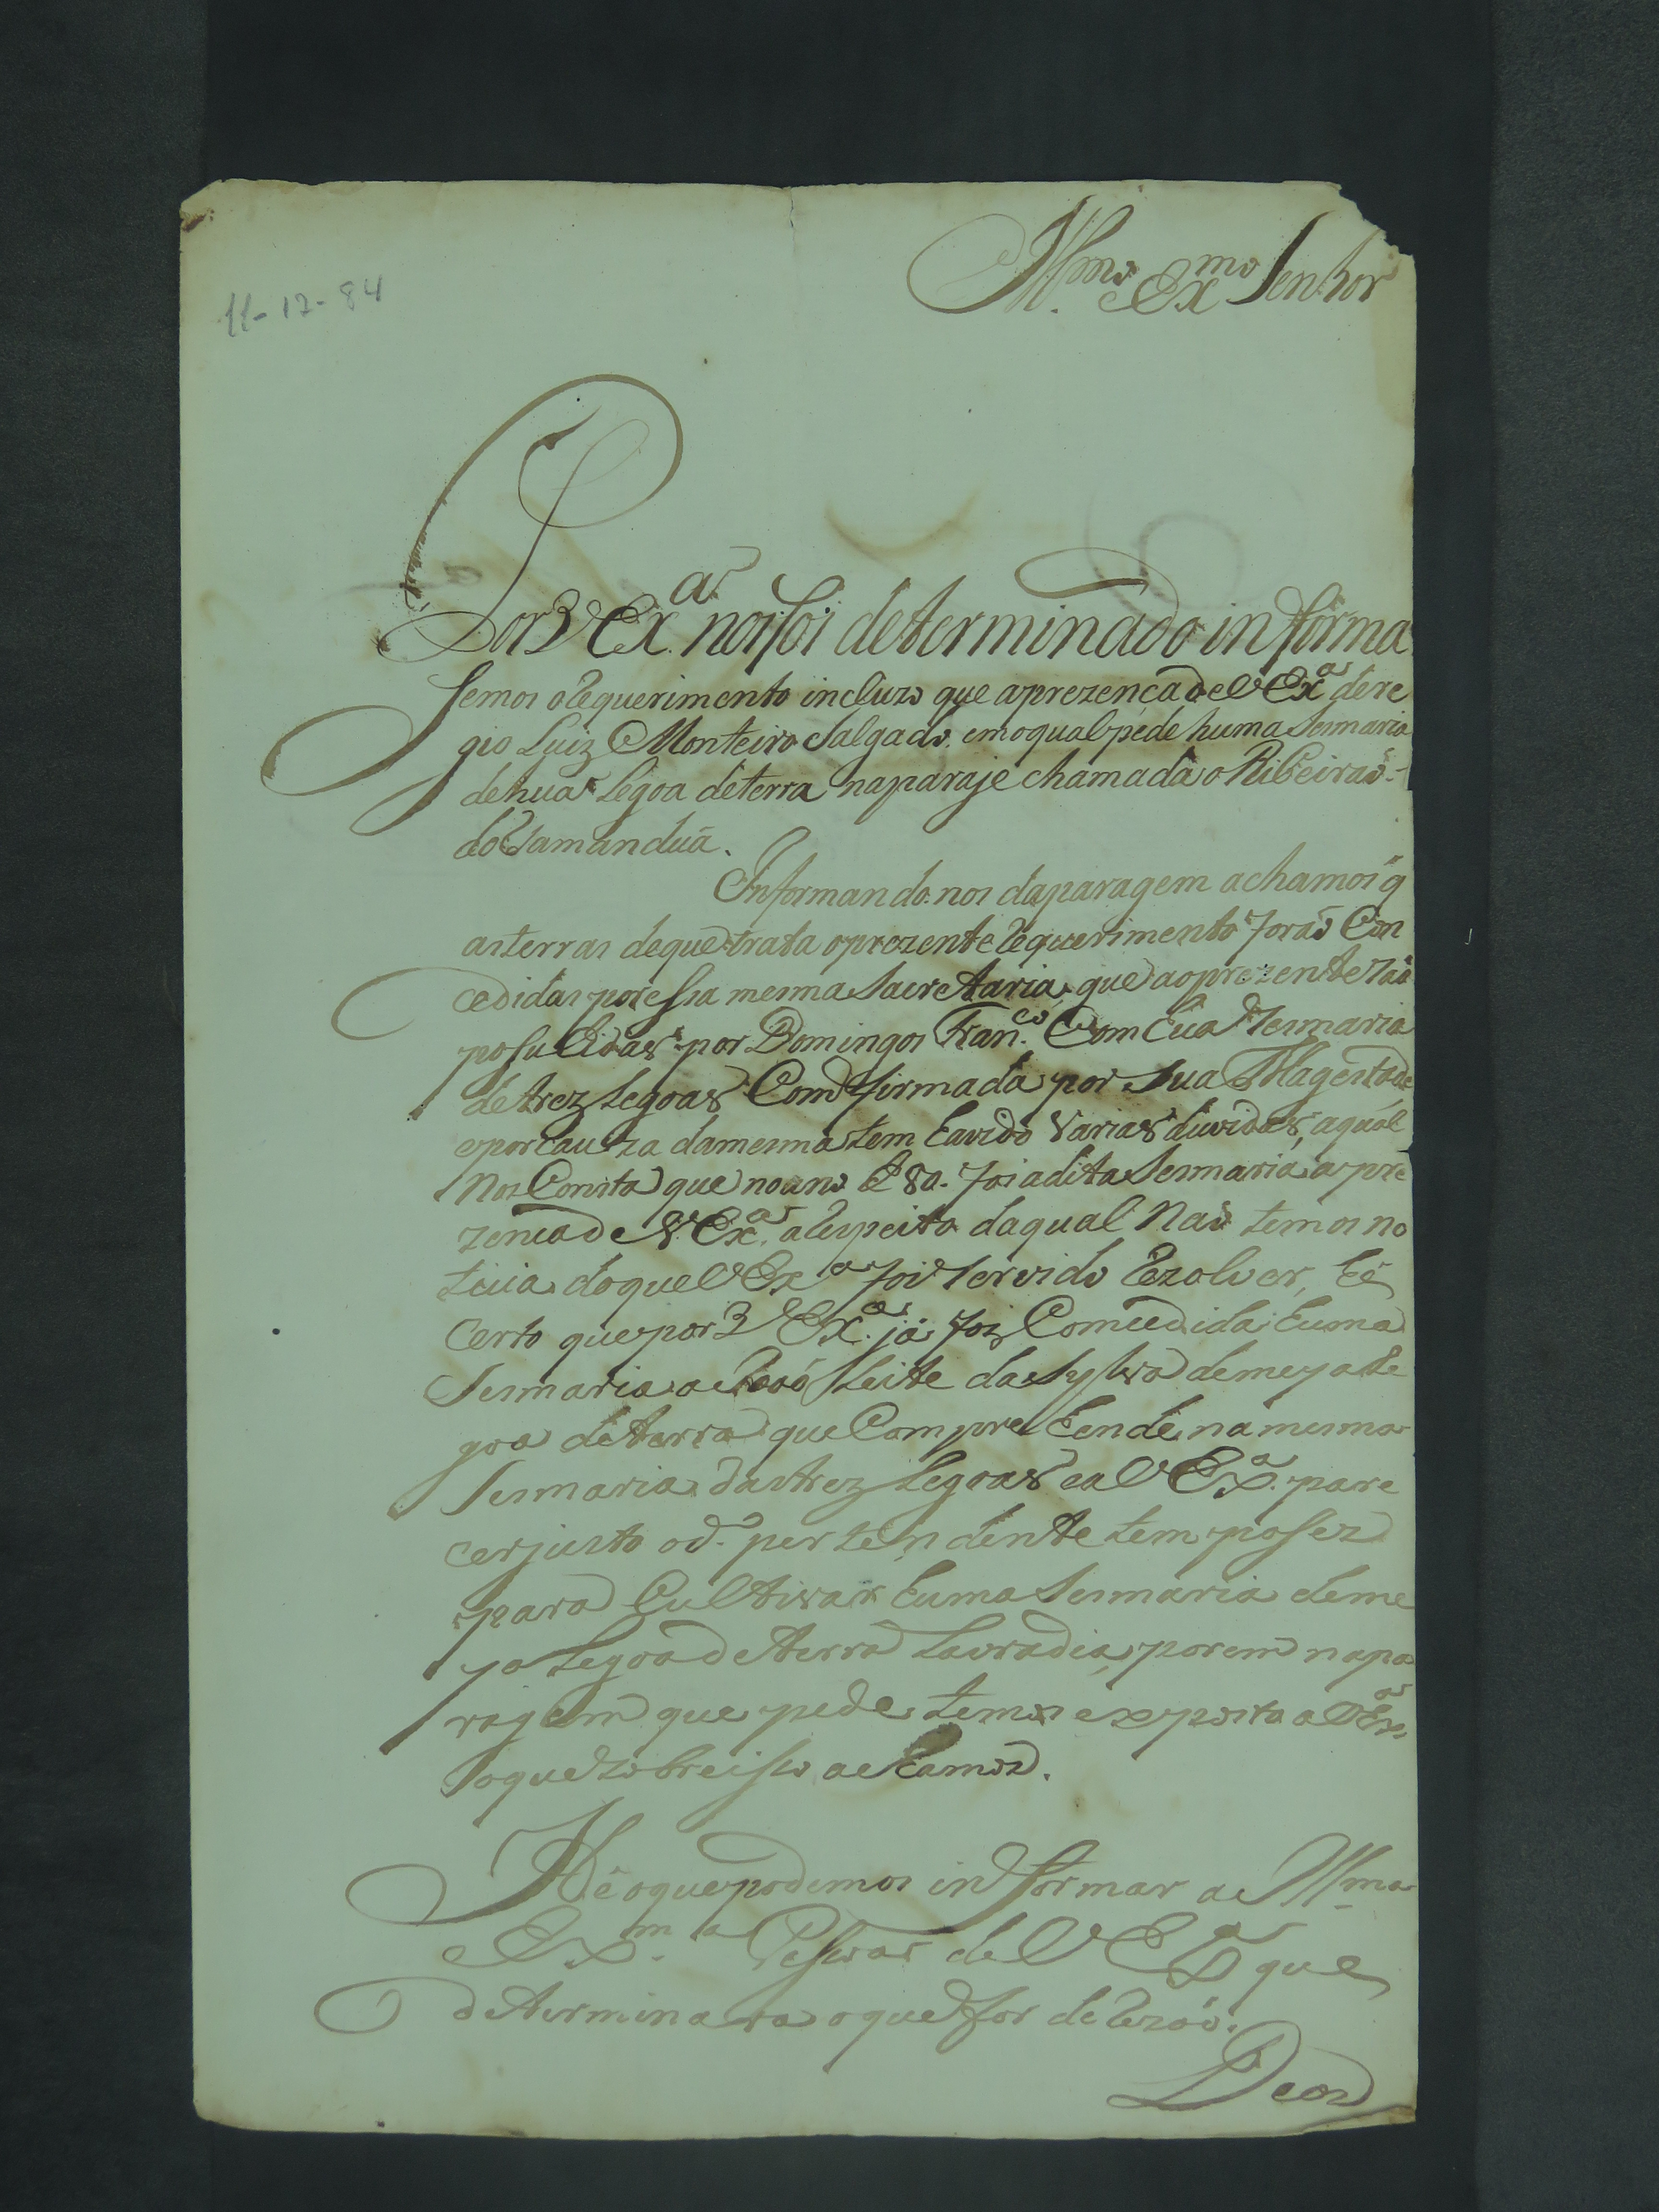 11-12-84
Ill.mo Ex.mo Senhor
Por V Ex.a nos foi determinado informa
semos o Requerimento incluzo que a prezença de V Ex.a dere
gio Luiz Monteiro Salgado. em o qual pede huma Sesmaria
de hua Legoa de terra na paraje chamada o Ribeirão
do Tamanduâ.
Informando nos da paragem achamos q̃
as terras de que trata o prezente Requerimento forão Con
cedidas por essa mesma Sacretaria, que ao prezente são
posuhidas por Domingos Fran.co Com hua Sesmaria
de trez Legoas Comfirmada por Sua Magestade
e por cauza da mesma tem havido Varias duvidas, a qual
Nos Consta que no ano de 80. foi a dita Sesmaria a pre
zença de V. Ex.a a Respeito da qual Não temos no
ticia do que V Ex.a foi Servido Rezolver, he
Certo que por V Ex.a já foi Comcedida huma
Sesmaria a João Leite da Sylva de meya Le
goa de terra que Comprehende na mesma
Sesmaria das trez Legoas e a V Ex.a pare
cer justo o d.o pertendente tem poses
para Cultivar huma Sesmaria de me
ya Legoa de terra Lavradia, porem na pa
ragem que pede temos exposto a V Ex.a
o que sobre isso achamos.
Hé o que podemos informar a Ill.ma
e Ex.ma Pessoa de V Ex.a que
determinara o que for de Rezão.
Deos